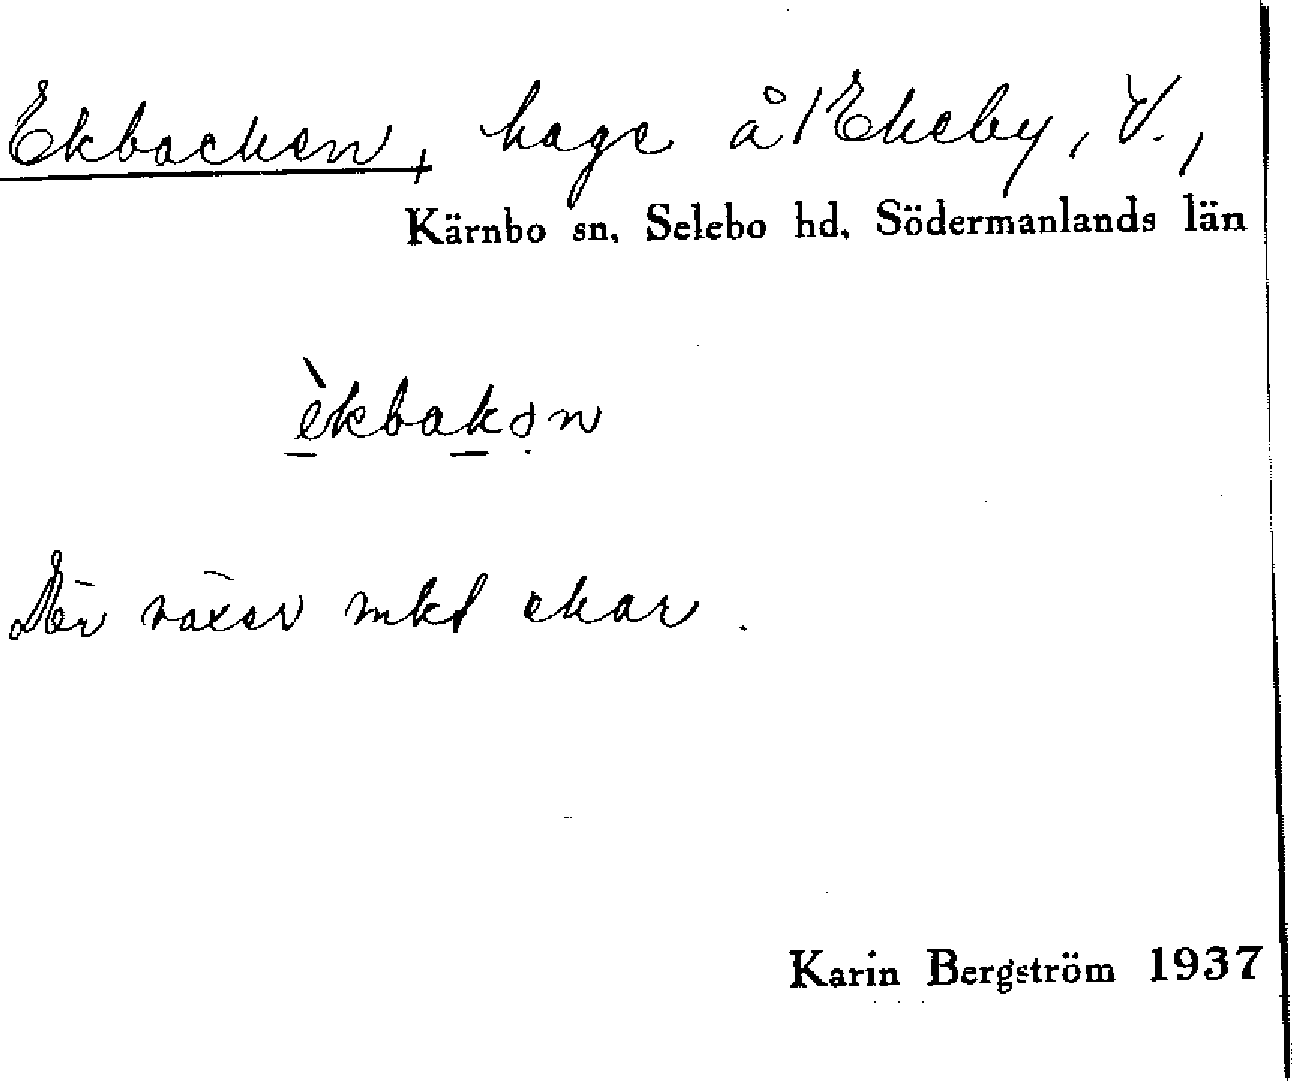 Ekbacken, hage å/Ekeby, V.,
Kärnbo sn, Selebo hd, Södermanlands län
èkbakən
Där växer mkt ekar.
Karin Bergström 1937